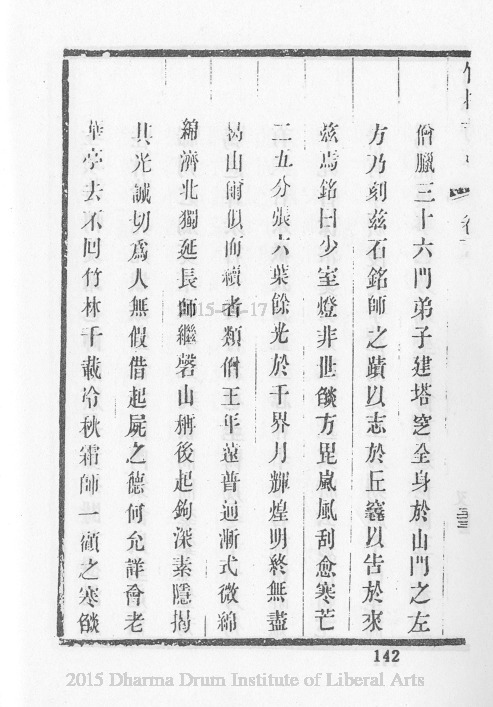 僧臘三十六門弟子建塔窆全身於山門之左
方乃刻茲石銘師之蹟以志於丘窿以告於來
茲焉銘曰少室燈非世燄方毘嵐風刮愈寒芒
二五分張六葉餘光於千界月輝煌明終無盡
曷山爾似而續者類僧王年遠普通漸式微綿
綿濟北獨延長師繼磬山稱後起鉤深素隱揭
其光誠切為人無假借起屍之德何允詳會老
華亭去不回竹林千載冷秋霜師一顧之寒燄
142
2015 Dharma Drum Institute of Liberal Arts